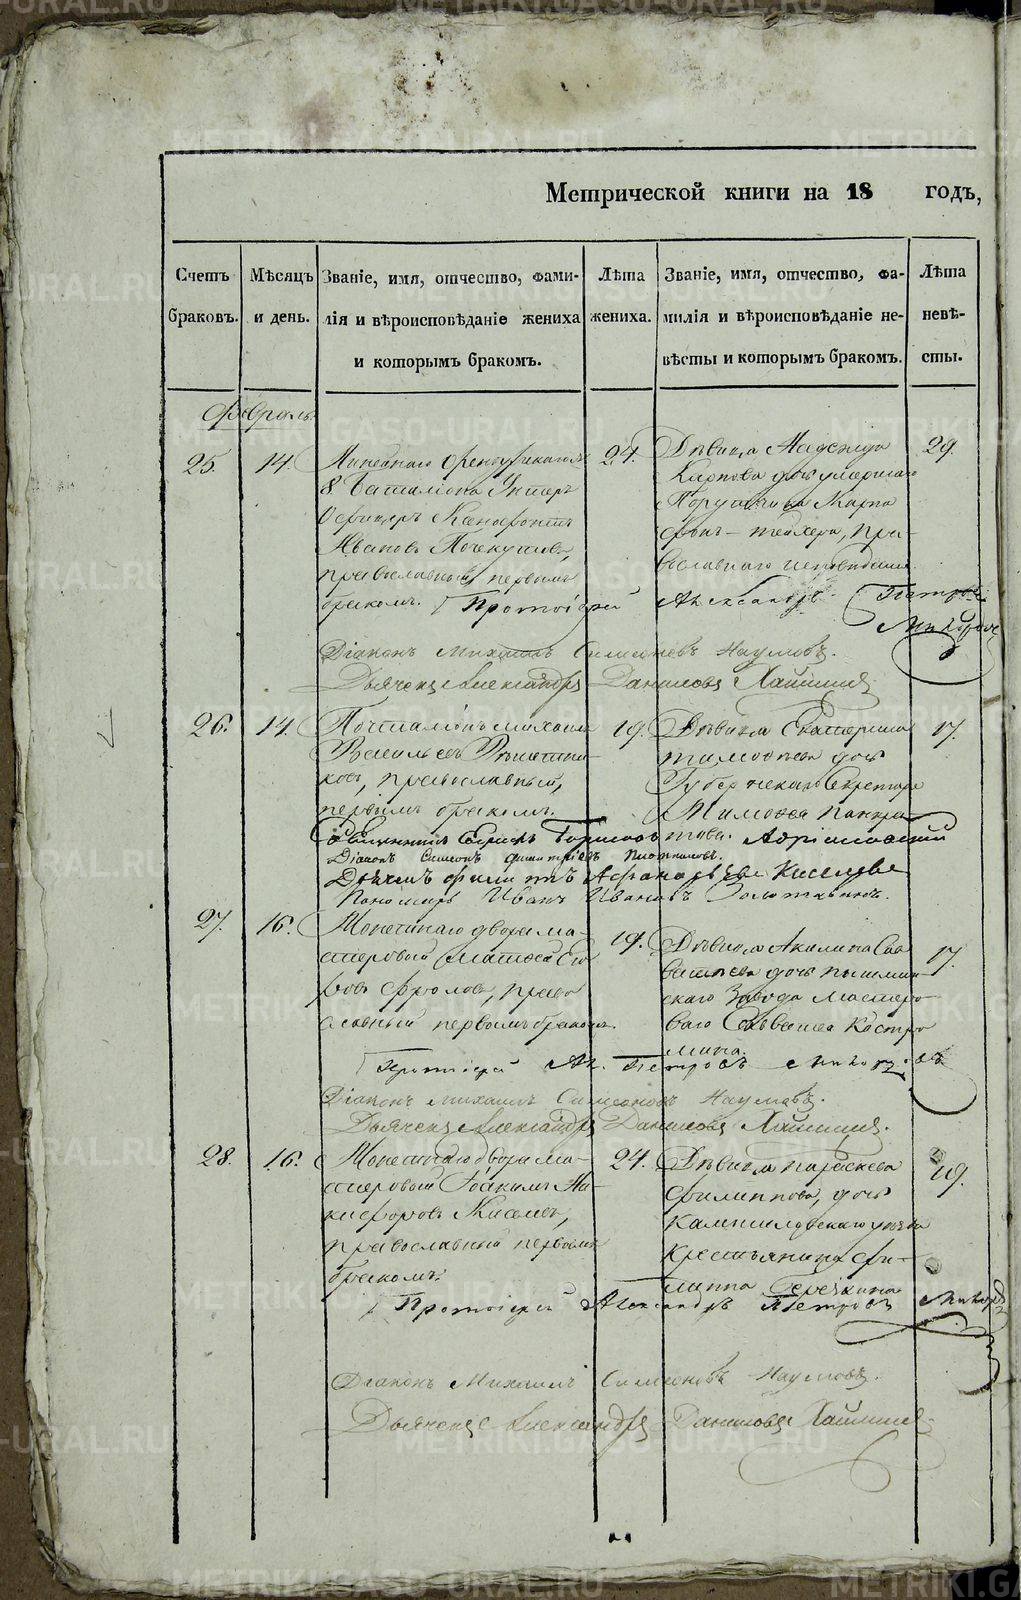 Метрической книги на 18 годъ,
Счетъ браковъ.
Мѣсяцъ и день.
Званіе, имя, отчество, фами-
лія и вѣроисповѣданіе жениха
и которымъ бракомъ.
Лѣта
жениха.
Званіе, имя, отчество, фа-
милія и вѣроисповѣданіе не-
вѣсты и которымъ бракомъ.
Лѣта
невѣ-
сты.
Февраль
25. 14.
Линейнаго Оренбургскаго
8 Баталіона Унтеръ
Офицеръ Ксенофонтъ
Ивановъ
православный первымъ
бракомъ.
24.
Дѣвица Надежда
Карпова дочь умершаго
Порутчика Карпа
фонъ-
православнаго исповѣданія
29.
Протоіерей Александръ Петровъ
Діаконъ Михаилъ Симеоновъ Наумовъ.
Дьячекъ Александръ Даниловъ
26. 14.
Почталіонъ Михаилъ
Васильевъ Рѣшетни-
ковъ, православный,
первымъ бракомъ.
19.
Дѣвица Екатерина
Тимофѣева дочь
Губернскаго Секретаря
Тимофея Панкра-
това.
17.
Священникъ Борисовъ
Діаконъ Симеонъ Димитріевъ Плотниковъ.
Дьячекъ Филиппъ Афанасьевъ Киселевъ
Пономарь Иванъ Ивановъ Золотавинъ.
27. 16.
Монетнаго двора ма-
стеровый Матвей
Фроловъ, право
славный первымъ бракомъ.
19.
Дѣвица Акилина Сав
ватѣева дочь Пышмин
скаго Завода Мастеро
ваго Савватея Костро
мина.
17.
Протоіерей Ал. Петровъ
Діаконъ Михаилъ Симеоновъ Наумовъ.
Дьячекъ Александръ Даниловъ
28. 16.
Монетнаго двора ма-
стеровый Іоакимъ Ни-
кифоровъ Киселевъ,
православный первымъ
бракомъ.
24.
Дѣвица Параскева
Филиппова, дочь
Камышловскаго уѣзда
крестьянина Фи-
липпа Берёзкина
19.
Протоіерей Александръ Петровъ
Діаконъ Михаилъ Симеоновъ Наумовъ.
Дьячекъ Александръ Даниловъ
METRIKI.GASO-URAL.RU